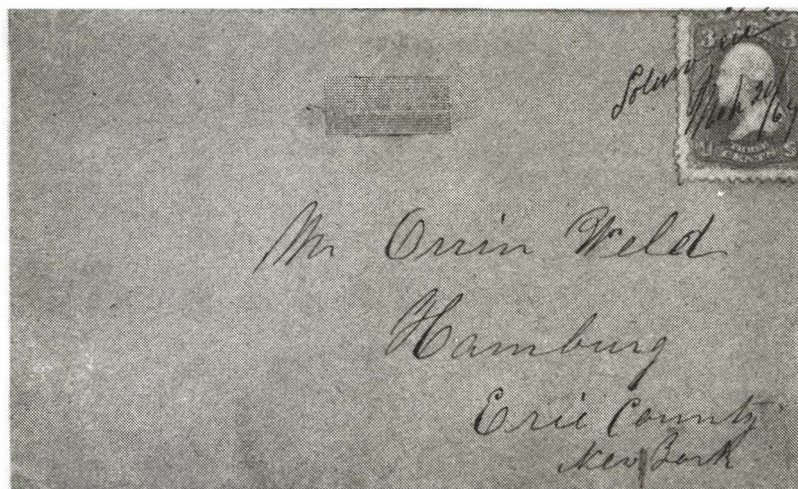 3 3
March 21/64
THREE
CENTS
Mr Orrin Weld
Hamburg
Erie County
New York